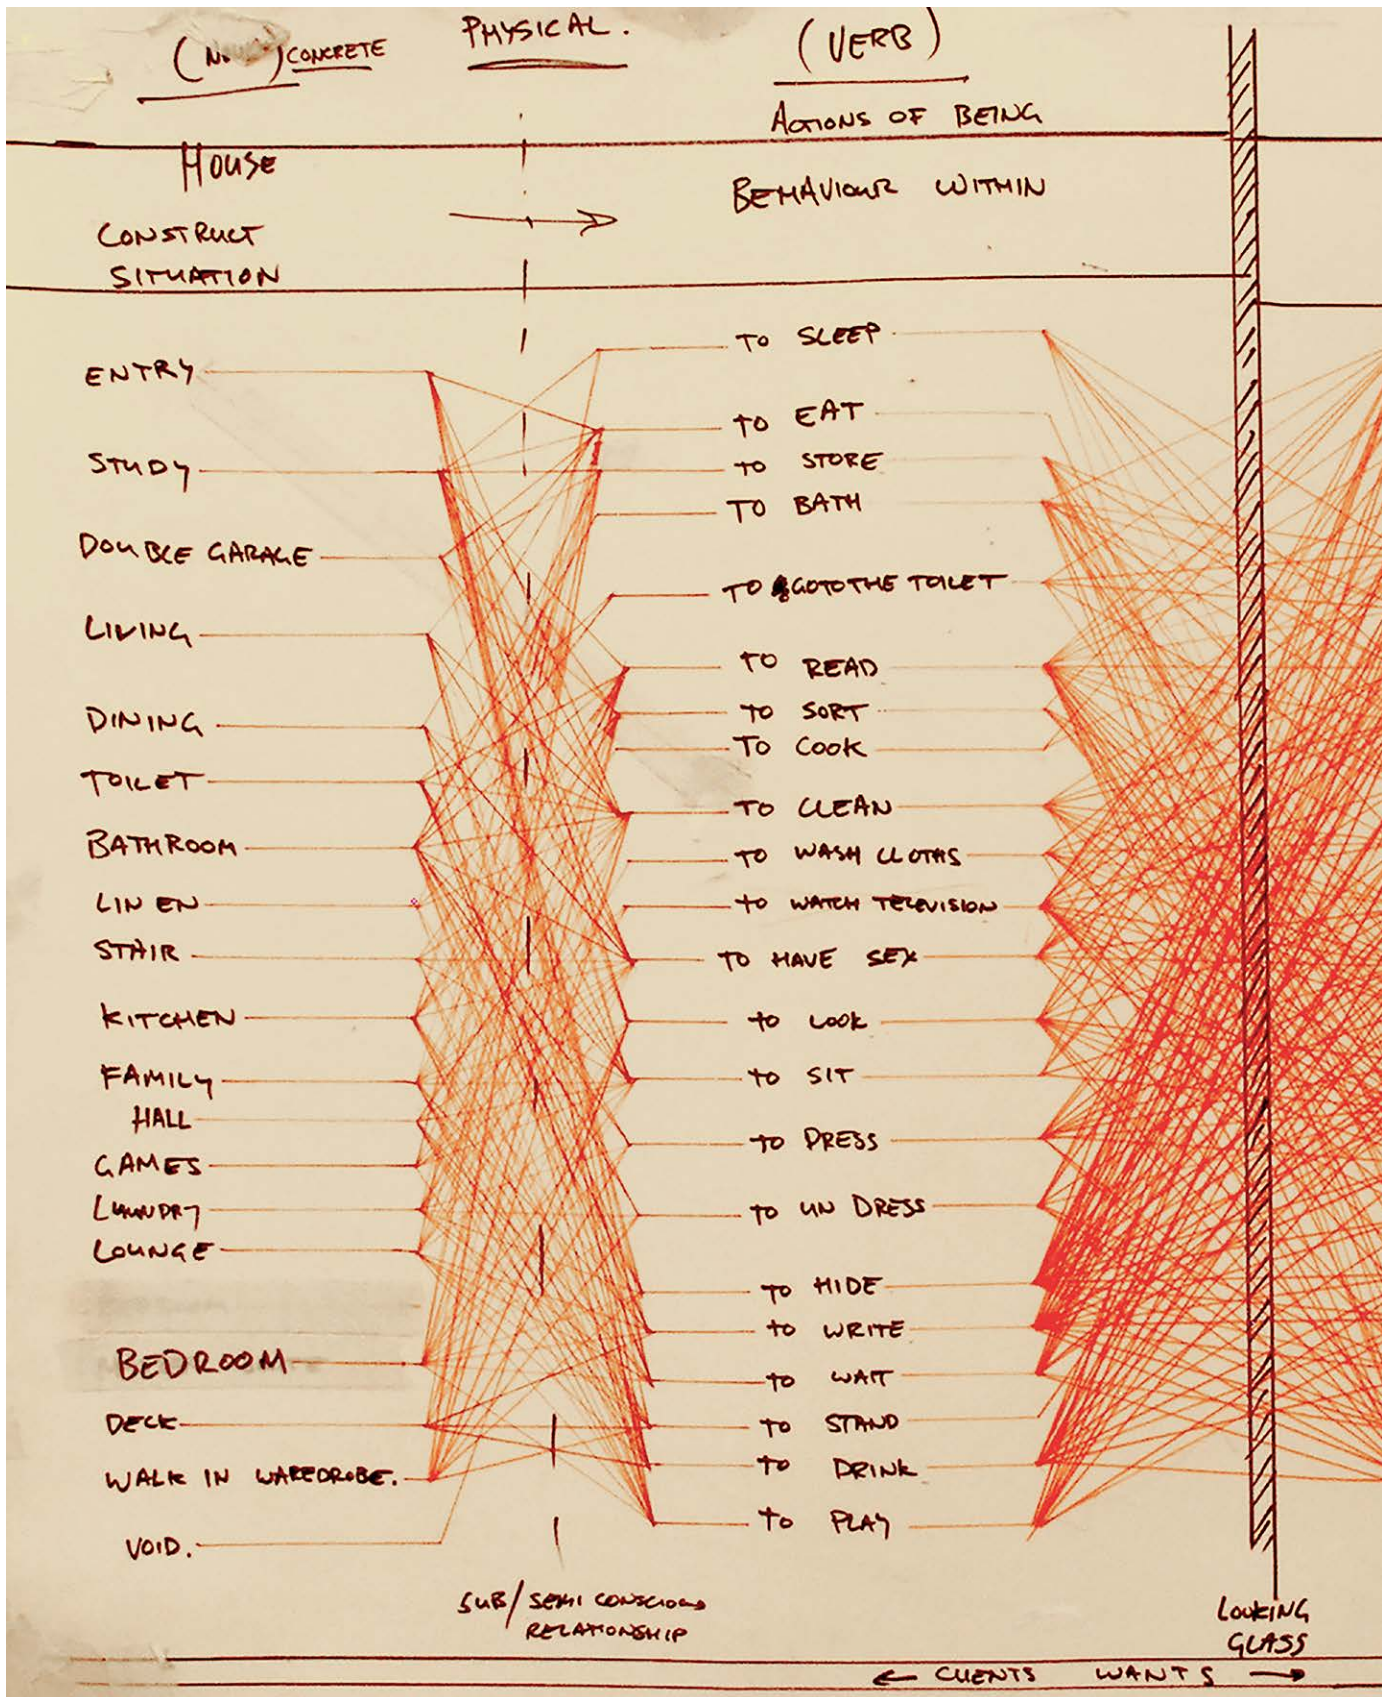 (NOUN) CONCRETE
PHYSICAL.
(VERB)
ACTIONS OF BEING
HOUSE
CONSTRUCT
SITUATION
BEHAVIOUR WITHIN
ENTRY
STUDY
DOUBLE GARAGE
LIVING
DINING
TOILET
BATHROOM
LINEN
STAIR
KITCHEN
FAMILY
HALL
GAMES
LAUNDRY
LOUNGE
BEDROOM
DECK
WALK IN WAREDROBE.
VOID.
TO SLEEP
TO EAT
TO STORE
TO BATH
TO GO TO THE TOILET
TO READ
TO SORT
TO COOK
TO CLEAN
TO WASH CLOTHS
TO WATCH TELEVISION
TO HAVE SEX
TO LOOK
TO SIT
TO DRESS
TO UN DRESS
TO HIDE
TO WRITE
TO WAIT
TO STAND
TO DRINK
TO PLAY
SUB/SEMI CONSCIOUS
RELATIONSHIP
LOOKING
GLASS
← CLIENTS WANTS →